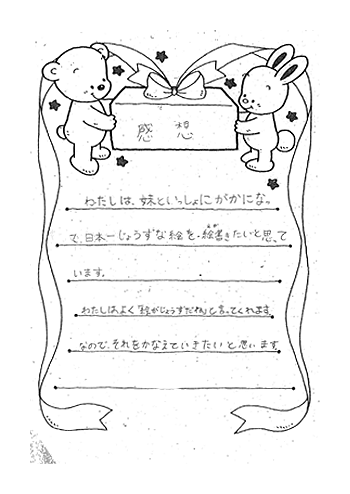 感想
わたしは、妹といっしょにがかになっ
て、日本一じょうずな絵を絵書きたいと思って
います。
わたしは、よく「絵がじょうずだね」と言ってくれます。
なので、それをかなえていきたいと思います。